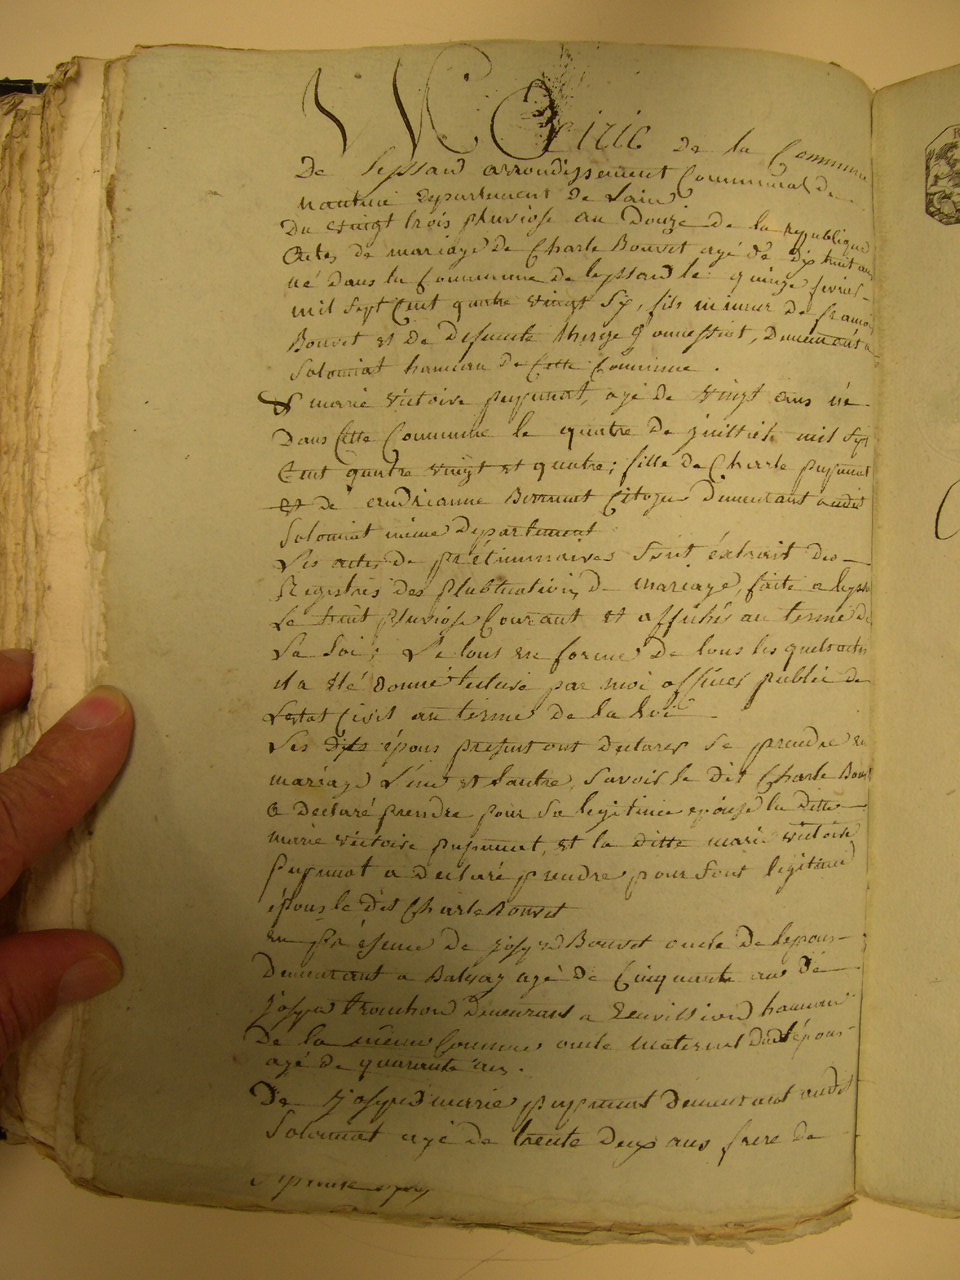 Mairie de la Commune
De Leyssard arrondissement Communal de
nantua Departement de Lain
Du vingt trois pluviose an Douze de la republique
Acte de mariage de Charle Bouvet agé de dix huit ans
né dans la Commune de leyssard le quinze fevrier
mil sept Cent quatre vingt six, fils mineur de francois
Bouvet et de Defunte therese Demeurant a
Solomiat hameau de Cette Commune .
& marie victoire puyniat, agé de vingt ans né
Dans Cette Commune le quatre de juilliet mil sept
Cent quatre vingt et quatre; fille de Charle puyniat
et de Citoyen Demeurant audit
Solomiat même Departement
Les actes de préliminaires sont éxtrait des
Registres des plublication de mariage, faite a leyssard
Le huit pluviose Courant et affichés au terme de
La Loi; Le tout en forme de tous les quels actes
il a été donné lecture par moi officier public de
Lestat Civil au terme de la loi
Les dits épous present ont declarer se prendre en
mariage L'un et lautre, savoir le dit Charle Bouvet
a Declaré prendre pour sa legitime epouse la ditte
marie victoire puyniat, et la ditte marie victoire
puyniat a declaré prendre pour sont legitime
épous le dit Charle Bouvet
en présence de josep Bouvet oncle de lepous
Demeurant a Balvay agé de Cinquante an de
josep trouchon demeurant a hameau
De la même Commune oncle maternel dudit épous
agé de quarante ans.
De joseph marie puyniat demeurant audit
Solomiat agé de trente deux ans frere de